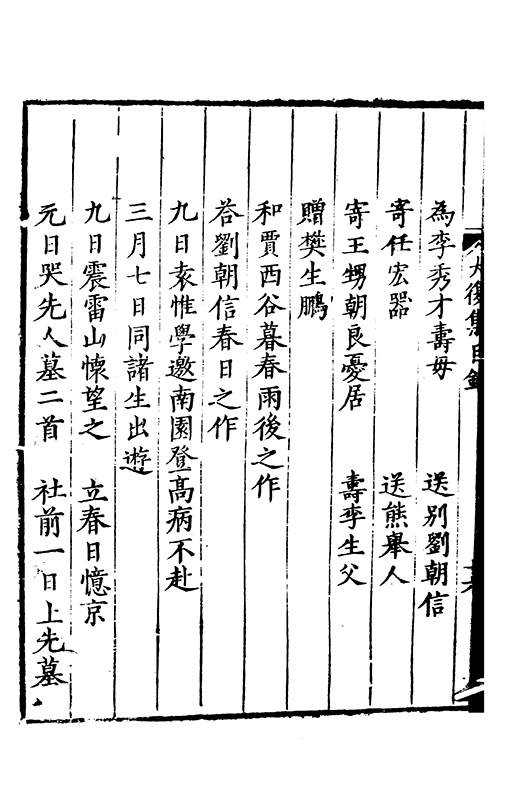 大復集目錄
為李秀才壽母　送別劉朝信
寄任宏器　送熊舉人
寄王甥朝良憂居　壽李生父
贈樊生鵬
和賈西谷暮春雨後之作
荅劉朝信春日之作
九日袁惟學邀南園登高病不赴
三月七日同諸生出遊
九日震雷山懷望之　立春日憶京
元日哭先人墓二首　社前一日上先墓